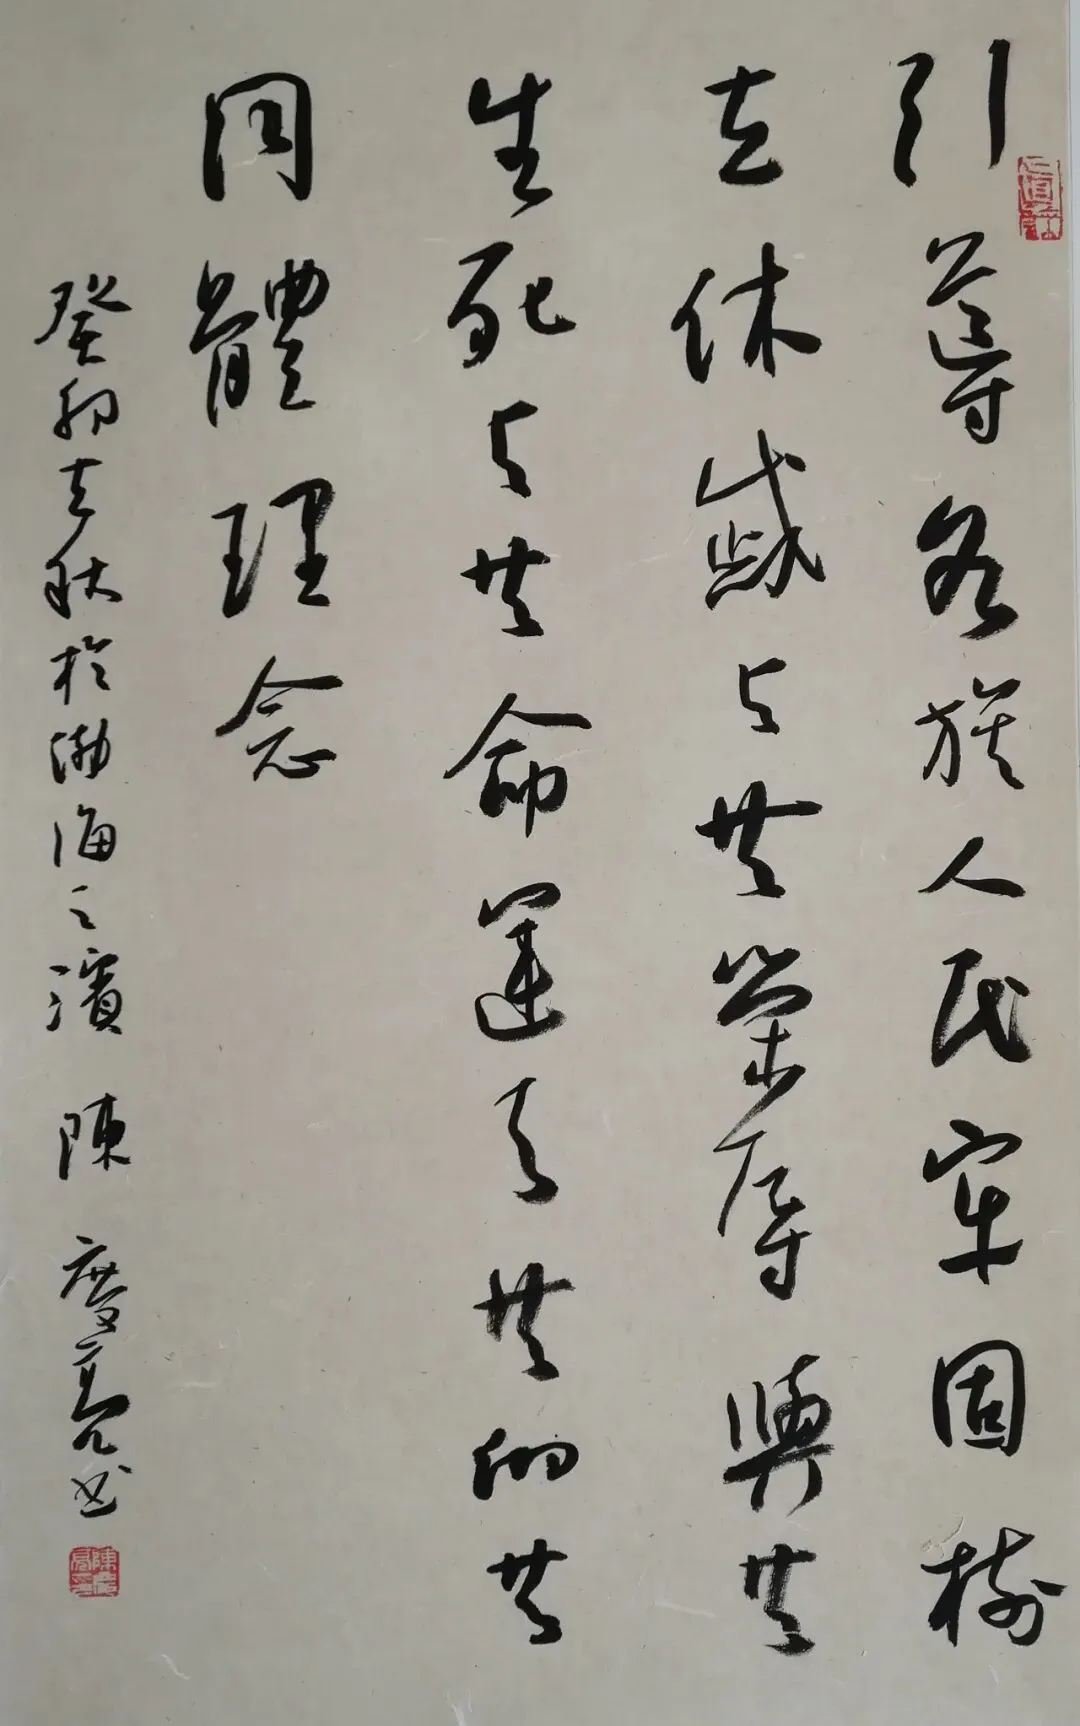 引導各族人民牢固樹
立休戚与共榮辱與共
生死与共命運与共的共
同體理念
癸卯立秋於渤海之濱 陳慶亮书